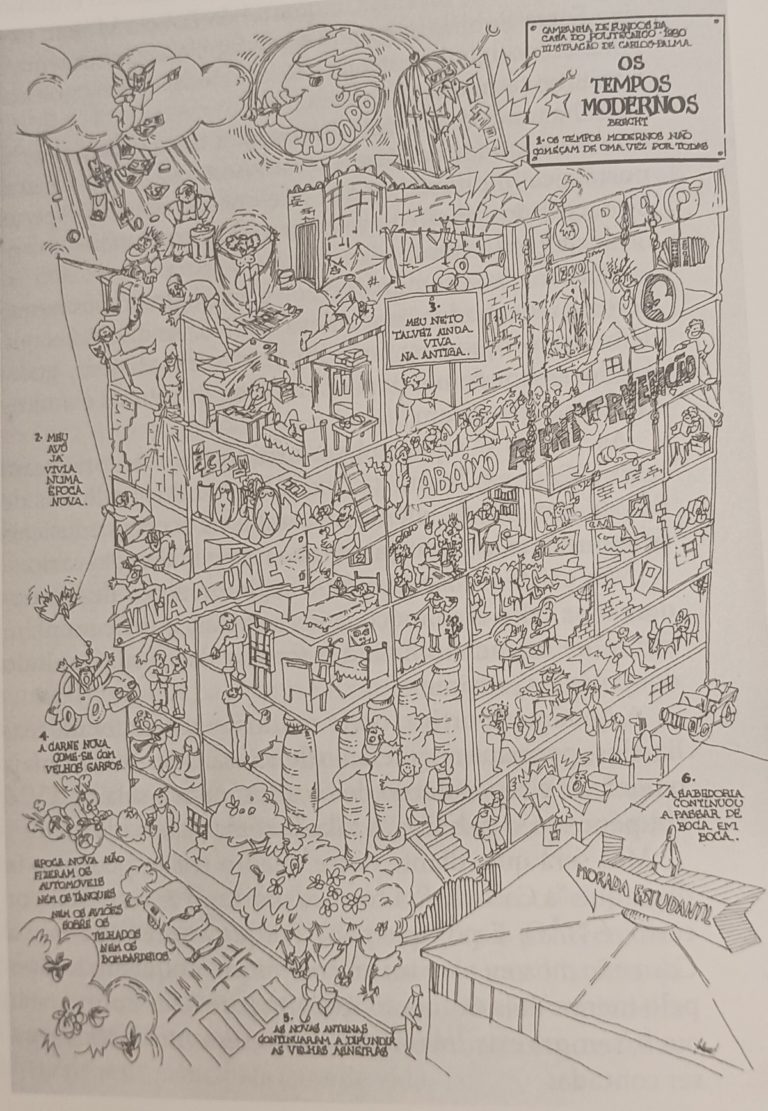 CAMPANHA DE FUNDOS DA
CASA DO POLITÉCNICO - 1980
ILUSTRAÇÃO DE CARLOS PALMA.
OS
TEMPOS
MODERNOS
BRECHT
1. OS TEMPOS MODERNOS NÃO
COMEÇAM DE UMA VEZ POR TODAS
CHOOPO
FORRÓ
3.
MEU NETO
TALVEZ AINDA
VIVA
NA ANTIGA..
2. MEU
AVÔ
JÁ
VIVIA
NUMA
ÉPOCA
NOVA..
ABAIXO A INTERVENÇÃO
VIVA A UNE
4.
A CARNE NOVA
COME-SE COM
VELHOS GARFOS.
ÉPOCA NOVA NÃO
FIZERAM OS
AUTOMÓVEIS
NEM OS TANQUES
NEM OS AVIÕES
SOBRE OS
TELHADOS
NEM OS
BOMBARDEIOS.
5.
AS NOVAS ANTENAS
CONTINUARAM A DIFUNDIR
AS VELHAS ASNEIRAS
6.
A SABEDORIA
CONTINUOU
A PASSAR DE
BOCA EM
BOCA..
MORADA ESTUDANTIL